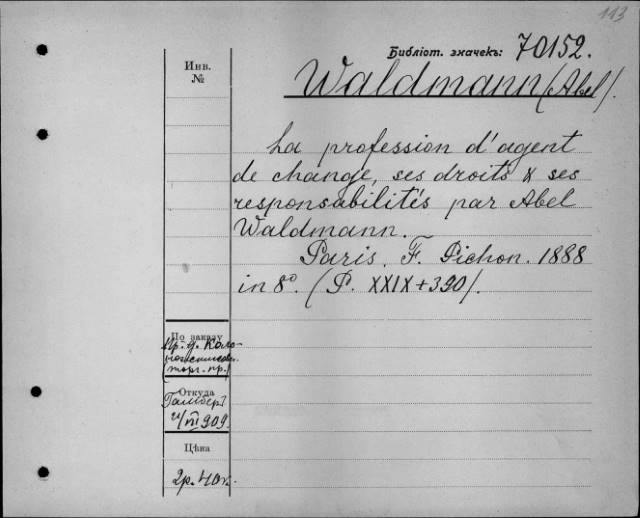 113
Библіот. значекъ: 70152.
Инв.
№
Waldmann (Abel).
La profession d'agent
de change, ses droits & ses
responsabilités par Abel
Waldmann.
Paris. F. Pichon. 1888
in 8º. (P. XXIX + 390).
По заказу
(торг. пр.)
Откуда
Гамберг
909.
Цѣна
2р. 40к.